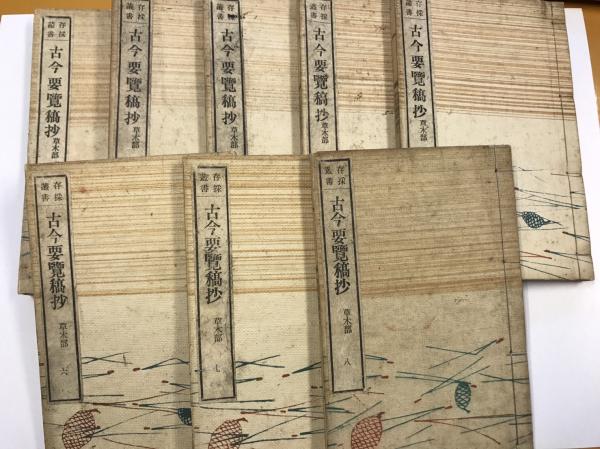 存採叢書
古今要覽稿抄 草木部
存採叢書
古今要覽稿抄 草木部
存採叢書
古今要覽稿抄 草木部
存採叢書
古今要覽稿抄 草木部
存採叢書
古今要覽稿抄 草木部
存採叢書
古今要覽稿抄 草木部 六
存採叢書
古今要覽稿抄 草木部 七
存採叢書
古今要覽稿抄 草木部 八